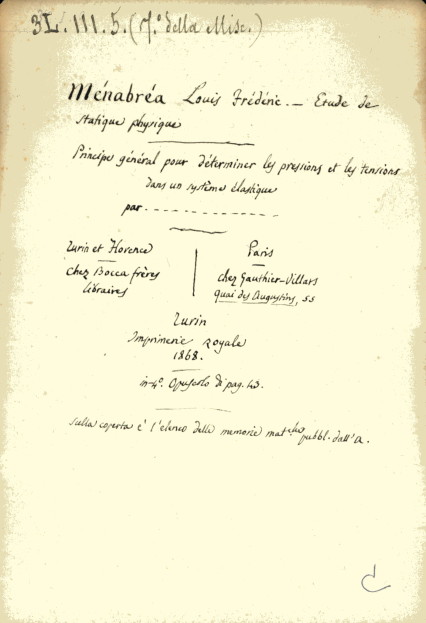 3L.III.5. (7.º della Misc.)
Ménabréa Louis Frédéric. — Etude de
statique physique
Principe général pour déterminer les pressions et les tensions
dans un système élastique
par - - - - - - - - - - - - - -
Turin et Florence
chez Bocca frères
libraires
Paris
chez Gauthier-Villars
quai des Augustins, 55
Turin
Imprimerie royale
1868.
in-4º. Opuscolo di pag. 43.
Sulla coperta è l'elenco delle memorie mat.che pubbl. dall'A.